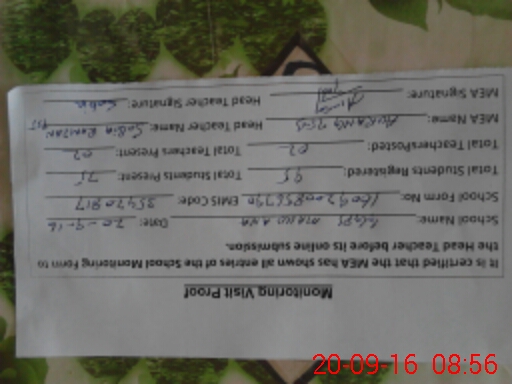 Monitoring Visit Proof
It is certified that the MEA has shown all entries of the School Monitoring Form to
the Head Teacher before its online submission.
School Name: GGPS Date: 20-9-16
School Form No: EMIS Code:
Total Students Registered: 95 Total Students Present: 75
Total TeachersPosted: 02 Total Teachers Present: 02
MEA Name: Head Teacher Name: SOBIA RAMZAN
MEA Signature: Head Teacher Signature: Sobia
20-09-16 08:56